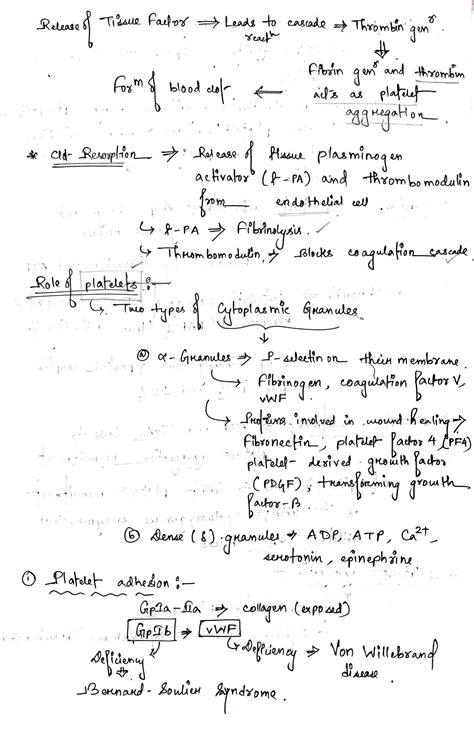 Release of Tissue Factor ⇒ Leads to cascade ⇒ Thrombin genⁿ.
reactⁿ
⇓
Fibrin genⁿ and thrombin
acts as platelet
aggregation
Formⁿ of blood clot. ←
* Clot Resorption ⇒ Release of tissue plasminogen
activator (t-PA) and thrombomodulin
from endothelial cell.
↳ t-PA ⇒ Fibrinolysis. ✓
↳ Thrombomodulin ⇒ Blocks coagulation cascade.
Role of platelets :-
↳ Two types of Cytoplasmic Granules
↓
ⓐ α-Granules ⇒ P-selectin on their membrane.
↳ Fibrinogen, coagulation factor V,
vWF.
↳ Proteins involved in wound healing →
Fibronectin, platelet factor 4 (PF4)
platelet-derived growth factor
(PDGF), transforming growth
factor-β.
ⓑ Dense (δ) granules ⇒ ADP, ATP, Ca²⁺,
serotonin, epinephrine.
① Platelet adhesion :-
GpIa-IIa ⇒ collagen (exposed)
GpIb ⇒ vWF
Deficiency ↳ Deficiency ⇒ Von Willebrand
⇓ disease.
Bernard-Soulier Syndrome.